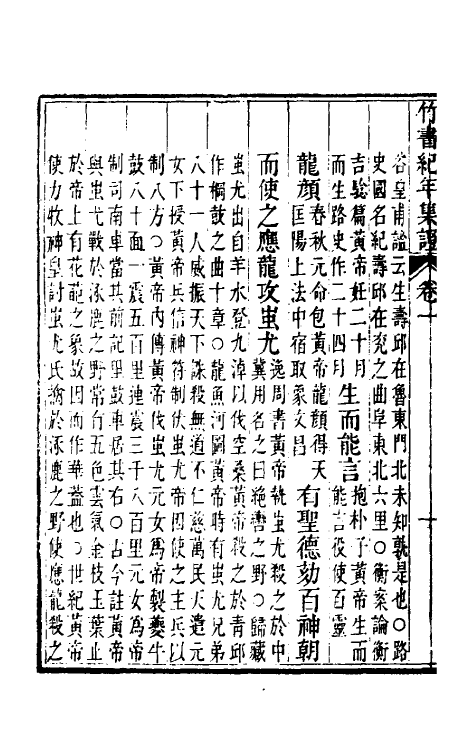 竹書紀年集證 卷一 十
谷皇甫謐云生壽邱在魯東門北未知孰是也〇路
史國名紀壽邱在兗之曲阜東北六里〇衡案論衡
吉驗篇黃帝妊二十月
而生路史作二十四月
生而能言
抱朴子黃帝生而
能言役使百靈
龍顏
春秋元命包黃帝龍顏得天
匡陽上法中宿取象文昌
有聖德劾百神朝
而使之應龍攻蚩尤
逸周書黃帝執蚩尤殺之於中
冀用名之曰絶轡之野〇歸藏
蚩尤出自羊水登九淖以伐空桑黃帝殺之於青邱
作棡鼓之曲十章〇龍魚河圖黃帝時有蚩尤兄弟
八十一人威振天下誅殺無道不仁慈萬民天遣元
女下授黃帝兵信神符制伏蚩尤帝因使之主兵以
制八方〇黃帝內傳黃帝伐蚩尤元女爲帝製夔牛
鼓八十面一震五百里連震三千八百里元女爲帝
制司南車當其前記里鼓車居其右〇古今註黃帝
與蚩尤戰於涿鹿之野常有五色雲氣金枝玉葉止
於帝上有花葩之象故因而作華蓋也〇世紀黃帝
使力牧神皇討蚩尤氏擒於涿鹿之野使應龍殺之